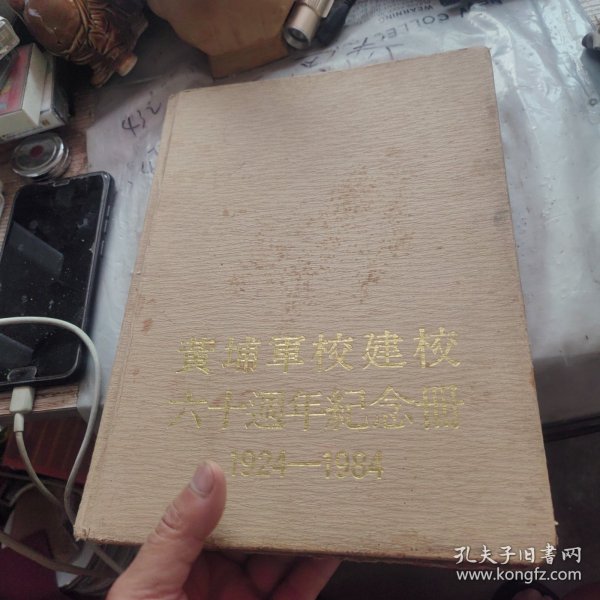 NEW COLLECT
WEARNING
432
黄埔軍校建校
六十週年紀念冊
1924—1984
孔夫子旧书网
www.kongfz.com